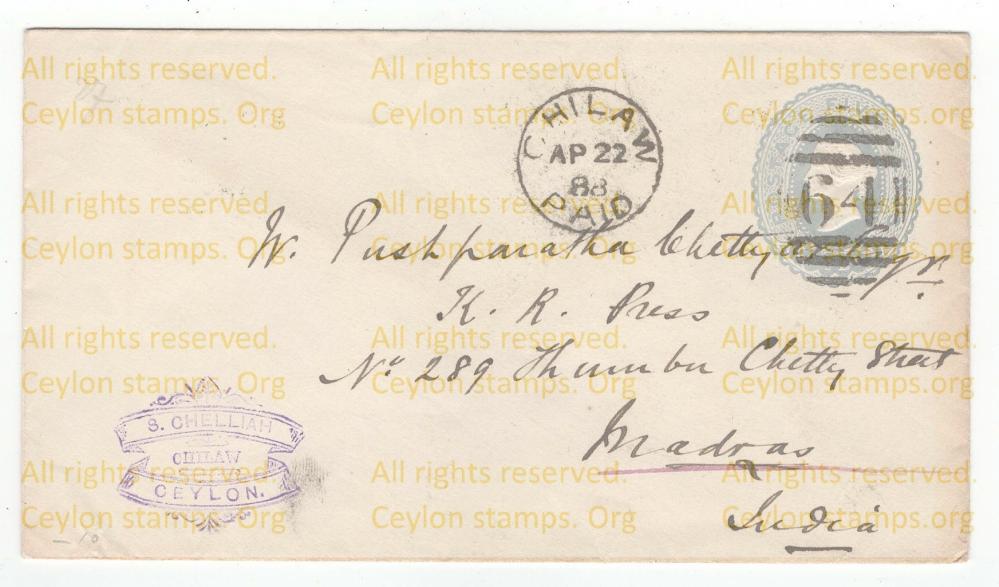 All rights reserved. All rights reserved. All rights reserved.
Ceylon stamps. Org Ceylon stamps. Org Ceylon stamps. Org
CHILAW
AP 22
88
PAID
64
All rights reserved. All rights reserved. All rights reserved.
Ceylon stamps. Org Ceylon stamps. Org Ceylon stamps. Org
W. Pushparatha Chettyar
K. R. Press
No 289 Thumbu Chetty Street
Madras
India
All rights reserved. All rights reserved. All rights reserved.
Ceylon stamps. Org Ceylon stamps. Org Ceylon stamps. Org
S. CHELLIAH
CHILAW
CEYLON.
All rights reserved. All rights reserved. All rights reserved.
Ceylon stamps. Org Ceylon stamps. Org Ceylon stamps. Org
10